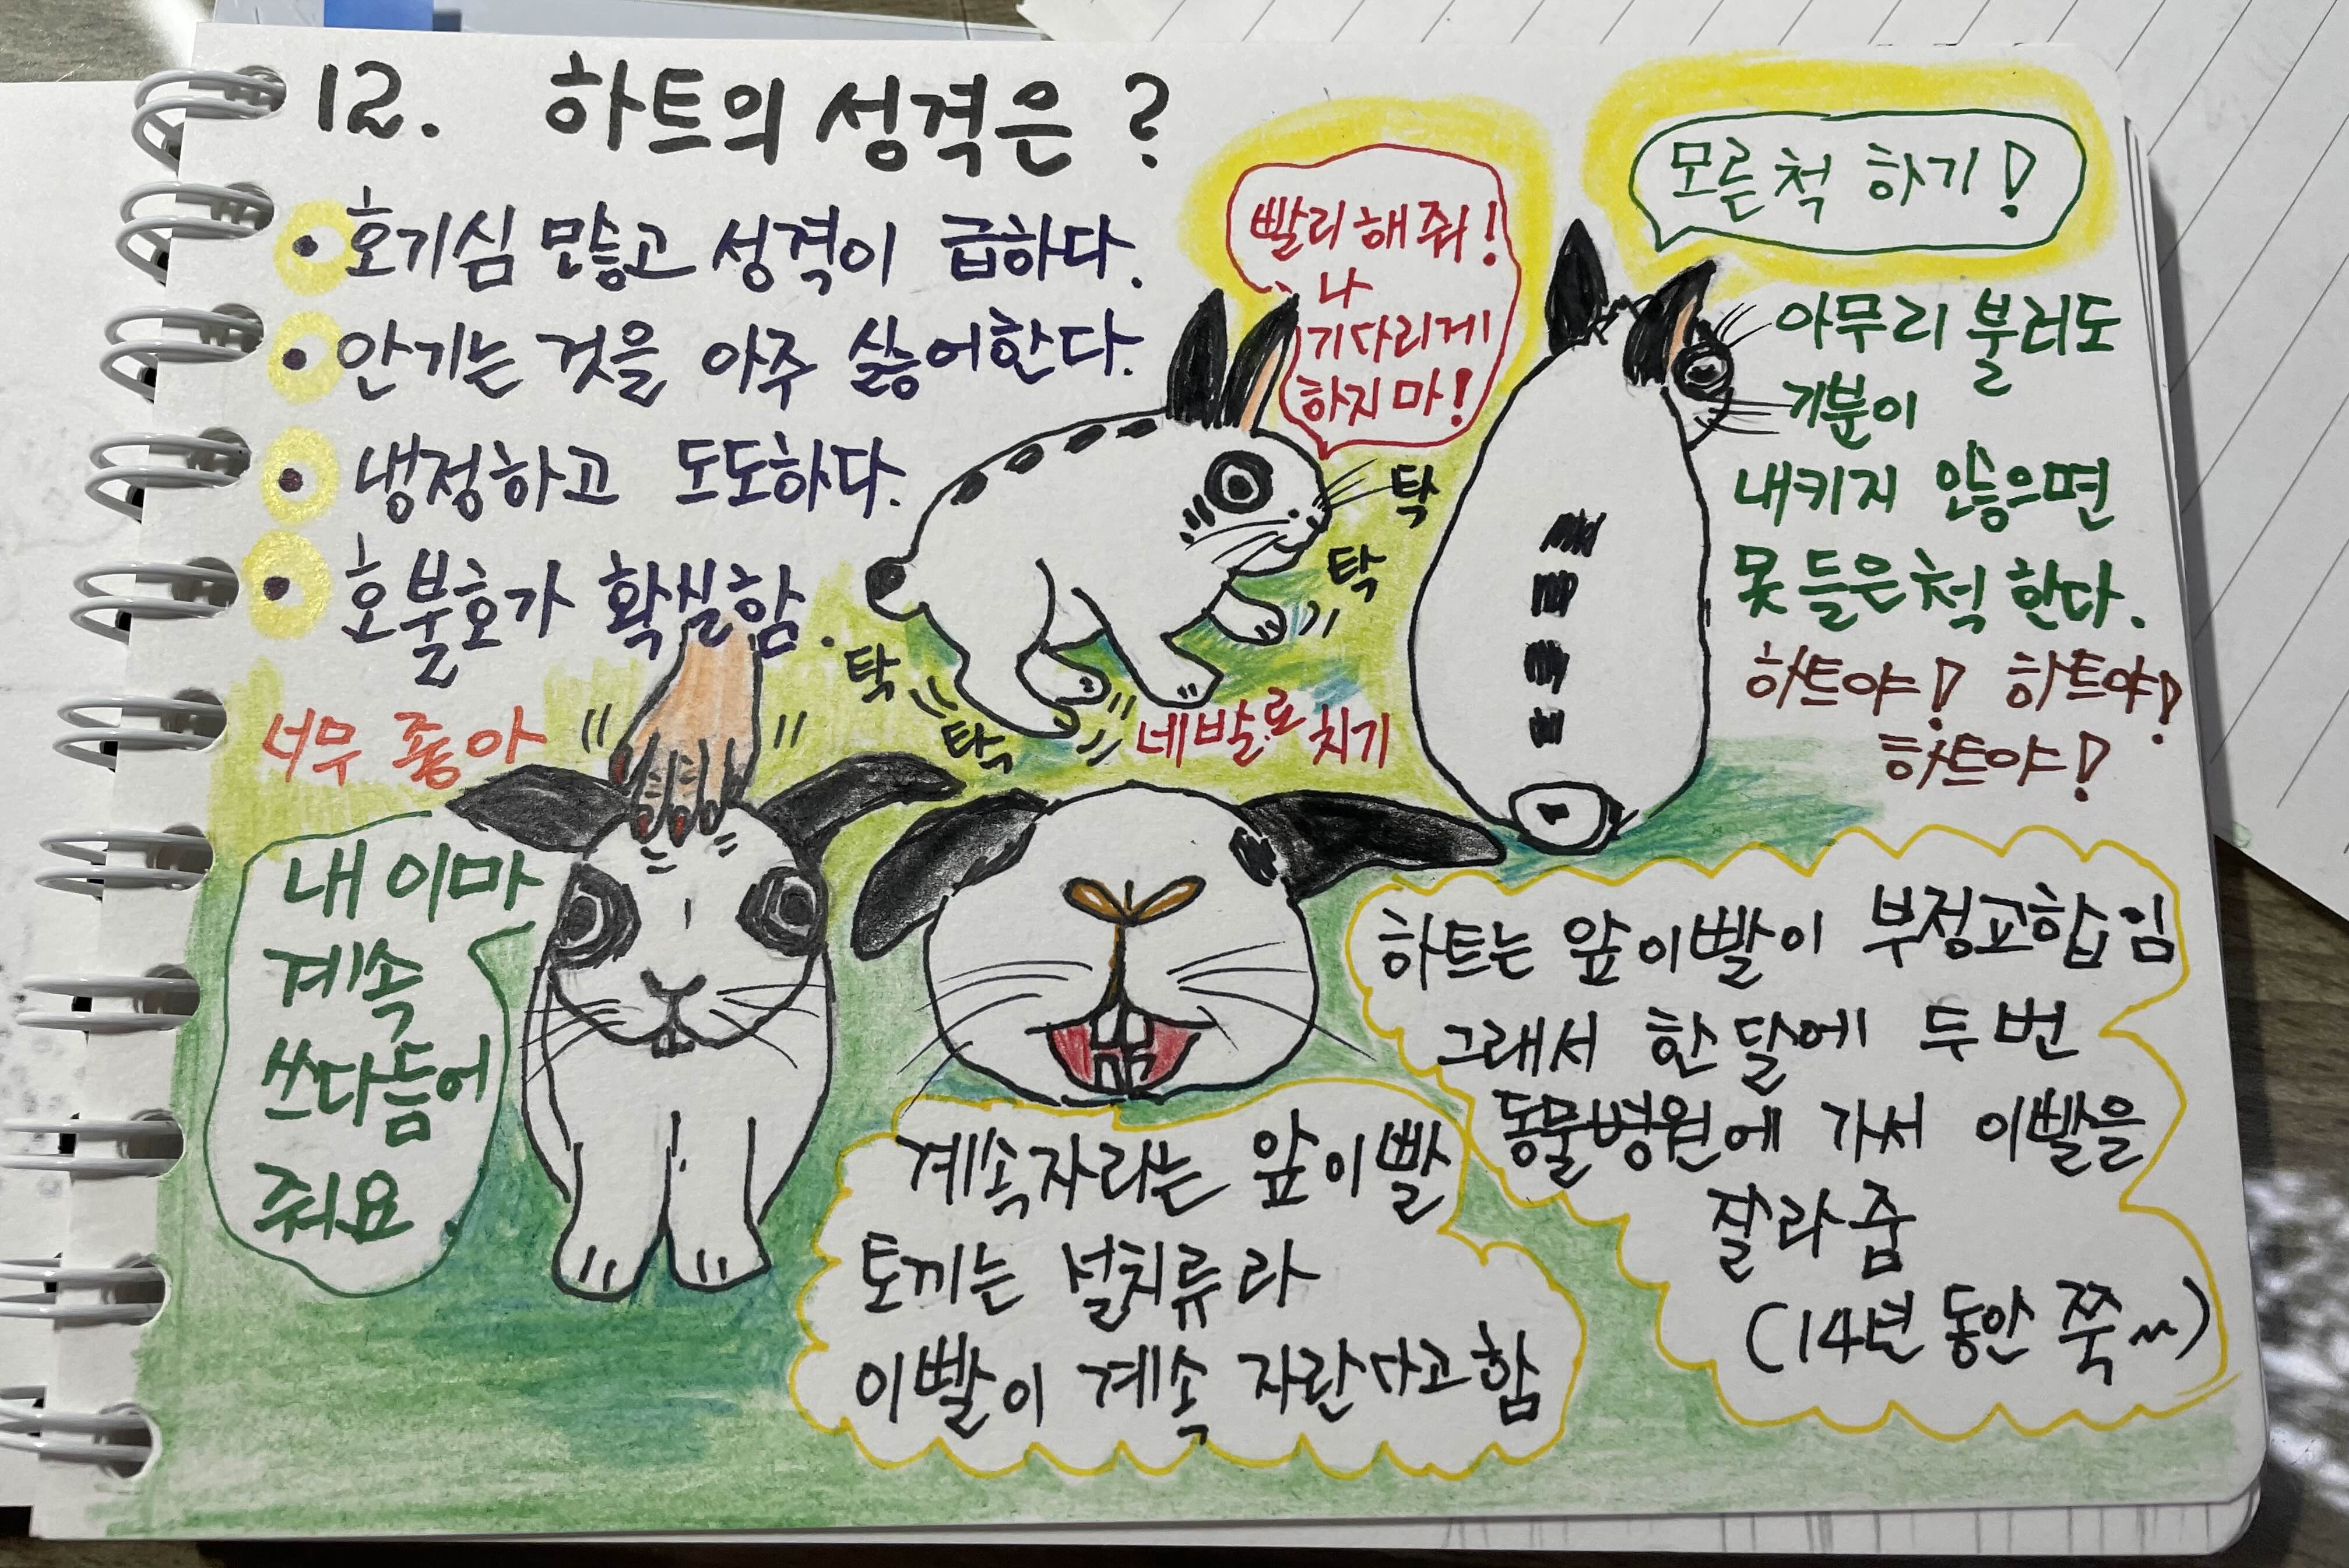 12. 하트의 성격은 ?
• 호기심 많고 성격이 급하다.
• 안기는 것을 아주 싫어한다.
• 냉정하고 도도하다.
• 호불호가 확실함.
빨리 해줘!
나
기다리게
하지마!
탁
탁
탁
탁
네발로 치기
모른척 하기!
아무리 불러도
기분이
내키지 않으면
못 들은척 한다.
하트야! 하트야!
하트야!
너무 좋아
내 이마
계속
쓰다듬어
줘요.
계속자라는 앞이빨
토끼는 설치류라
이빨이 계속 자란다고함
하트는 앞이빨이 부정교합임
그래서 한달에 두번
동물병원에 가서 이빨을
잘라줌
(14년 동안 쭉~)